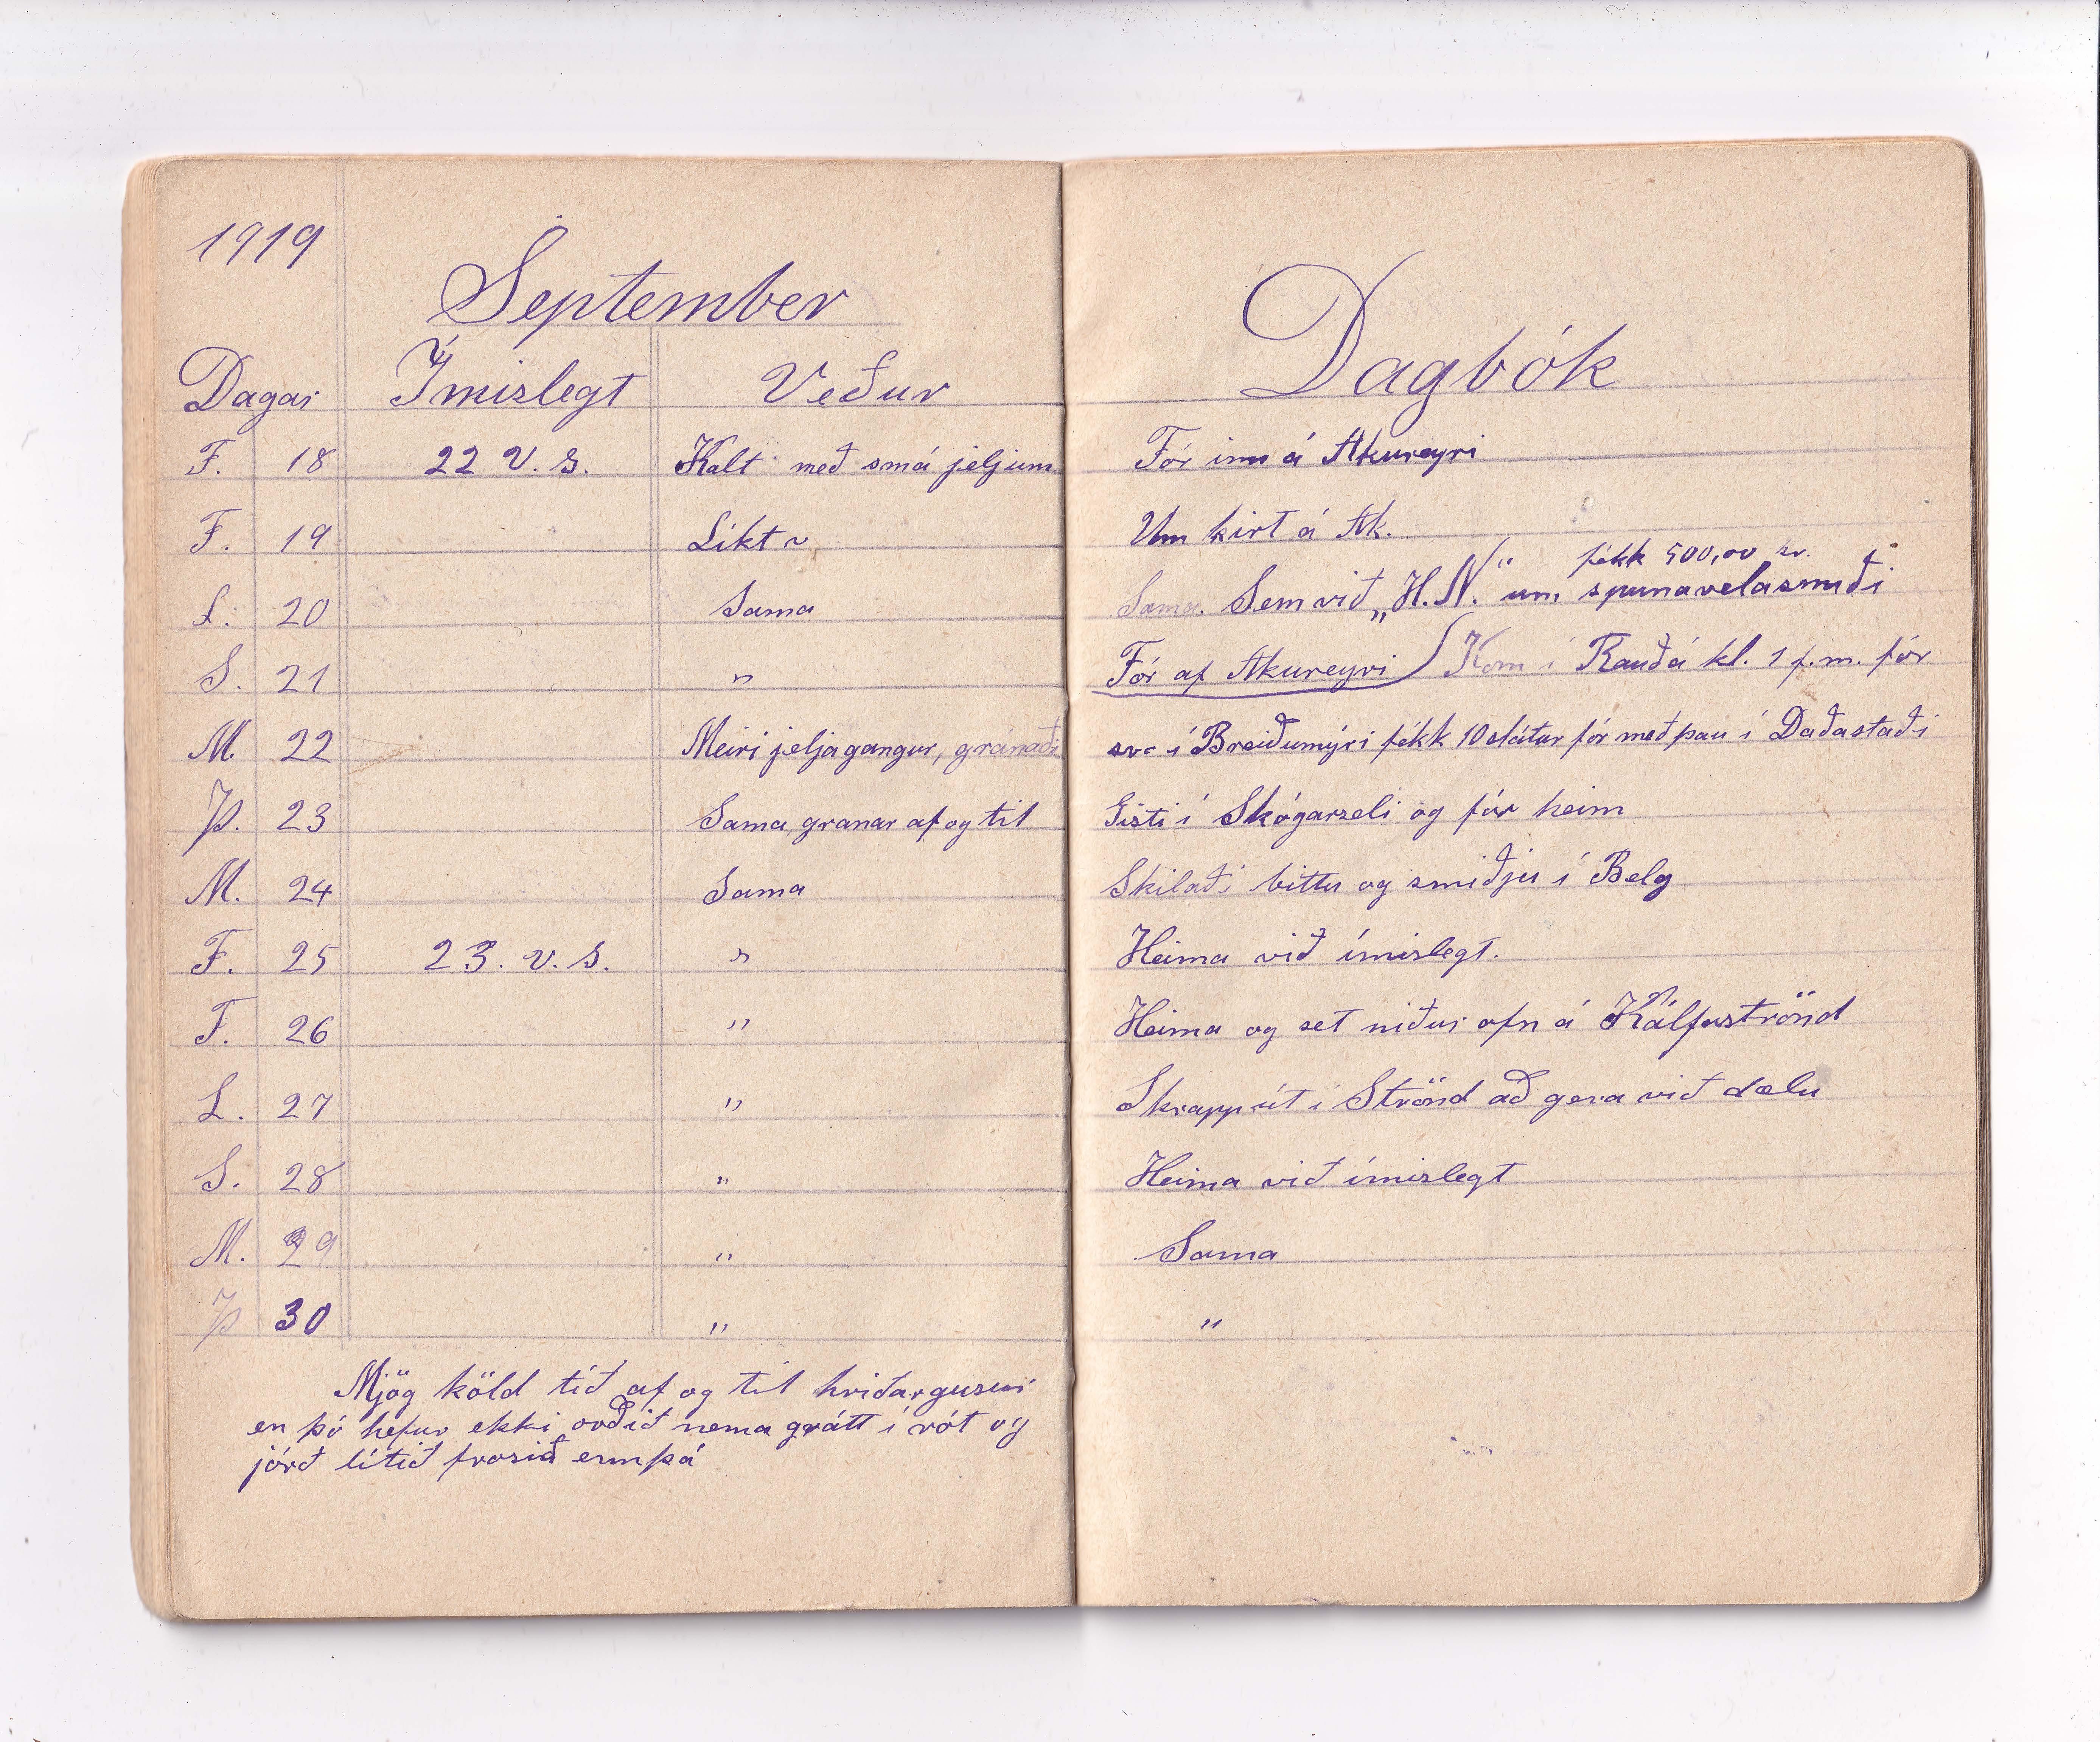 1919
September
Dagar Ímislegt Veður
F. 18 22 V. s. Kalt með smá jeljum
F. 19 Líkt
L. 20 Sama
S. 21 "
M. 22 Meiri jeljagangur, gránaði
Þ. 23 Sama, granar af og til
M. 24 Sama
F. 25 23. v. s. "
F. 26 "
L. 27 "
S. 28 "
M. 29 "
Þ 30 "
Mjög köld tíð af og til hriðargusur
en þó hefur ekki orðið nema grátt í rót og
jörð lítið frosið ennþá
Dagbók
Fór inn á Akureyri
Um kirt á Ak.
fékk 500,00 kr.
Sama. Sem við „H.N." um spunavelasmiði
Fór af Akureyri Kom í Rauðá kl. 1 f.m. fór
svo í Breiðumýri fékk 10 slátur fór með þau í Daðastaði
Gisti í Skógarseli og fór heim
Skilaði bittu og smiðju í Belg
Heima við ímislegt.
Heima og set niður ofn á Kálfaströnd
Skrapp út í Strönd að gera við dælu
Heima við ímislegt
Sama
"